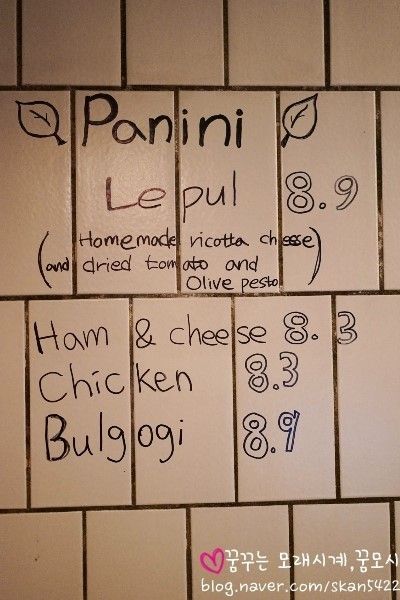 Panini
Le pul 8.9
(Homemade ricotta cheese
and dried tomato and
Olive pesto)
Ham & cheese 8.3
Chicken 8.3
Bulgogi 8.9
꿈꾸는 모래시계,꿈모시
blog.naver.com/skan5422